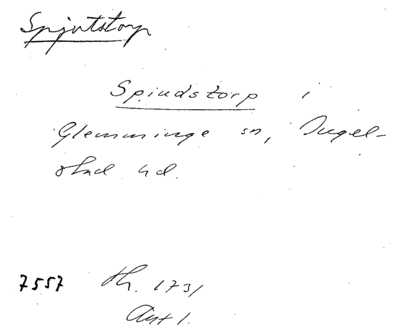 Spjutstorp
Spiudstorp i
Glemminge sn, Ingel-
stad hd.
7557 th. 1731
Art 1.